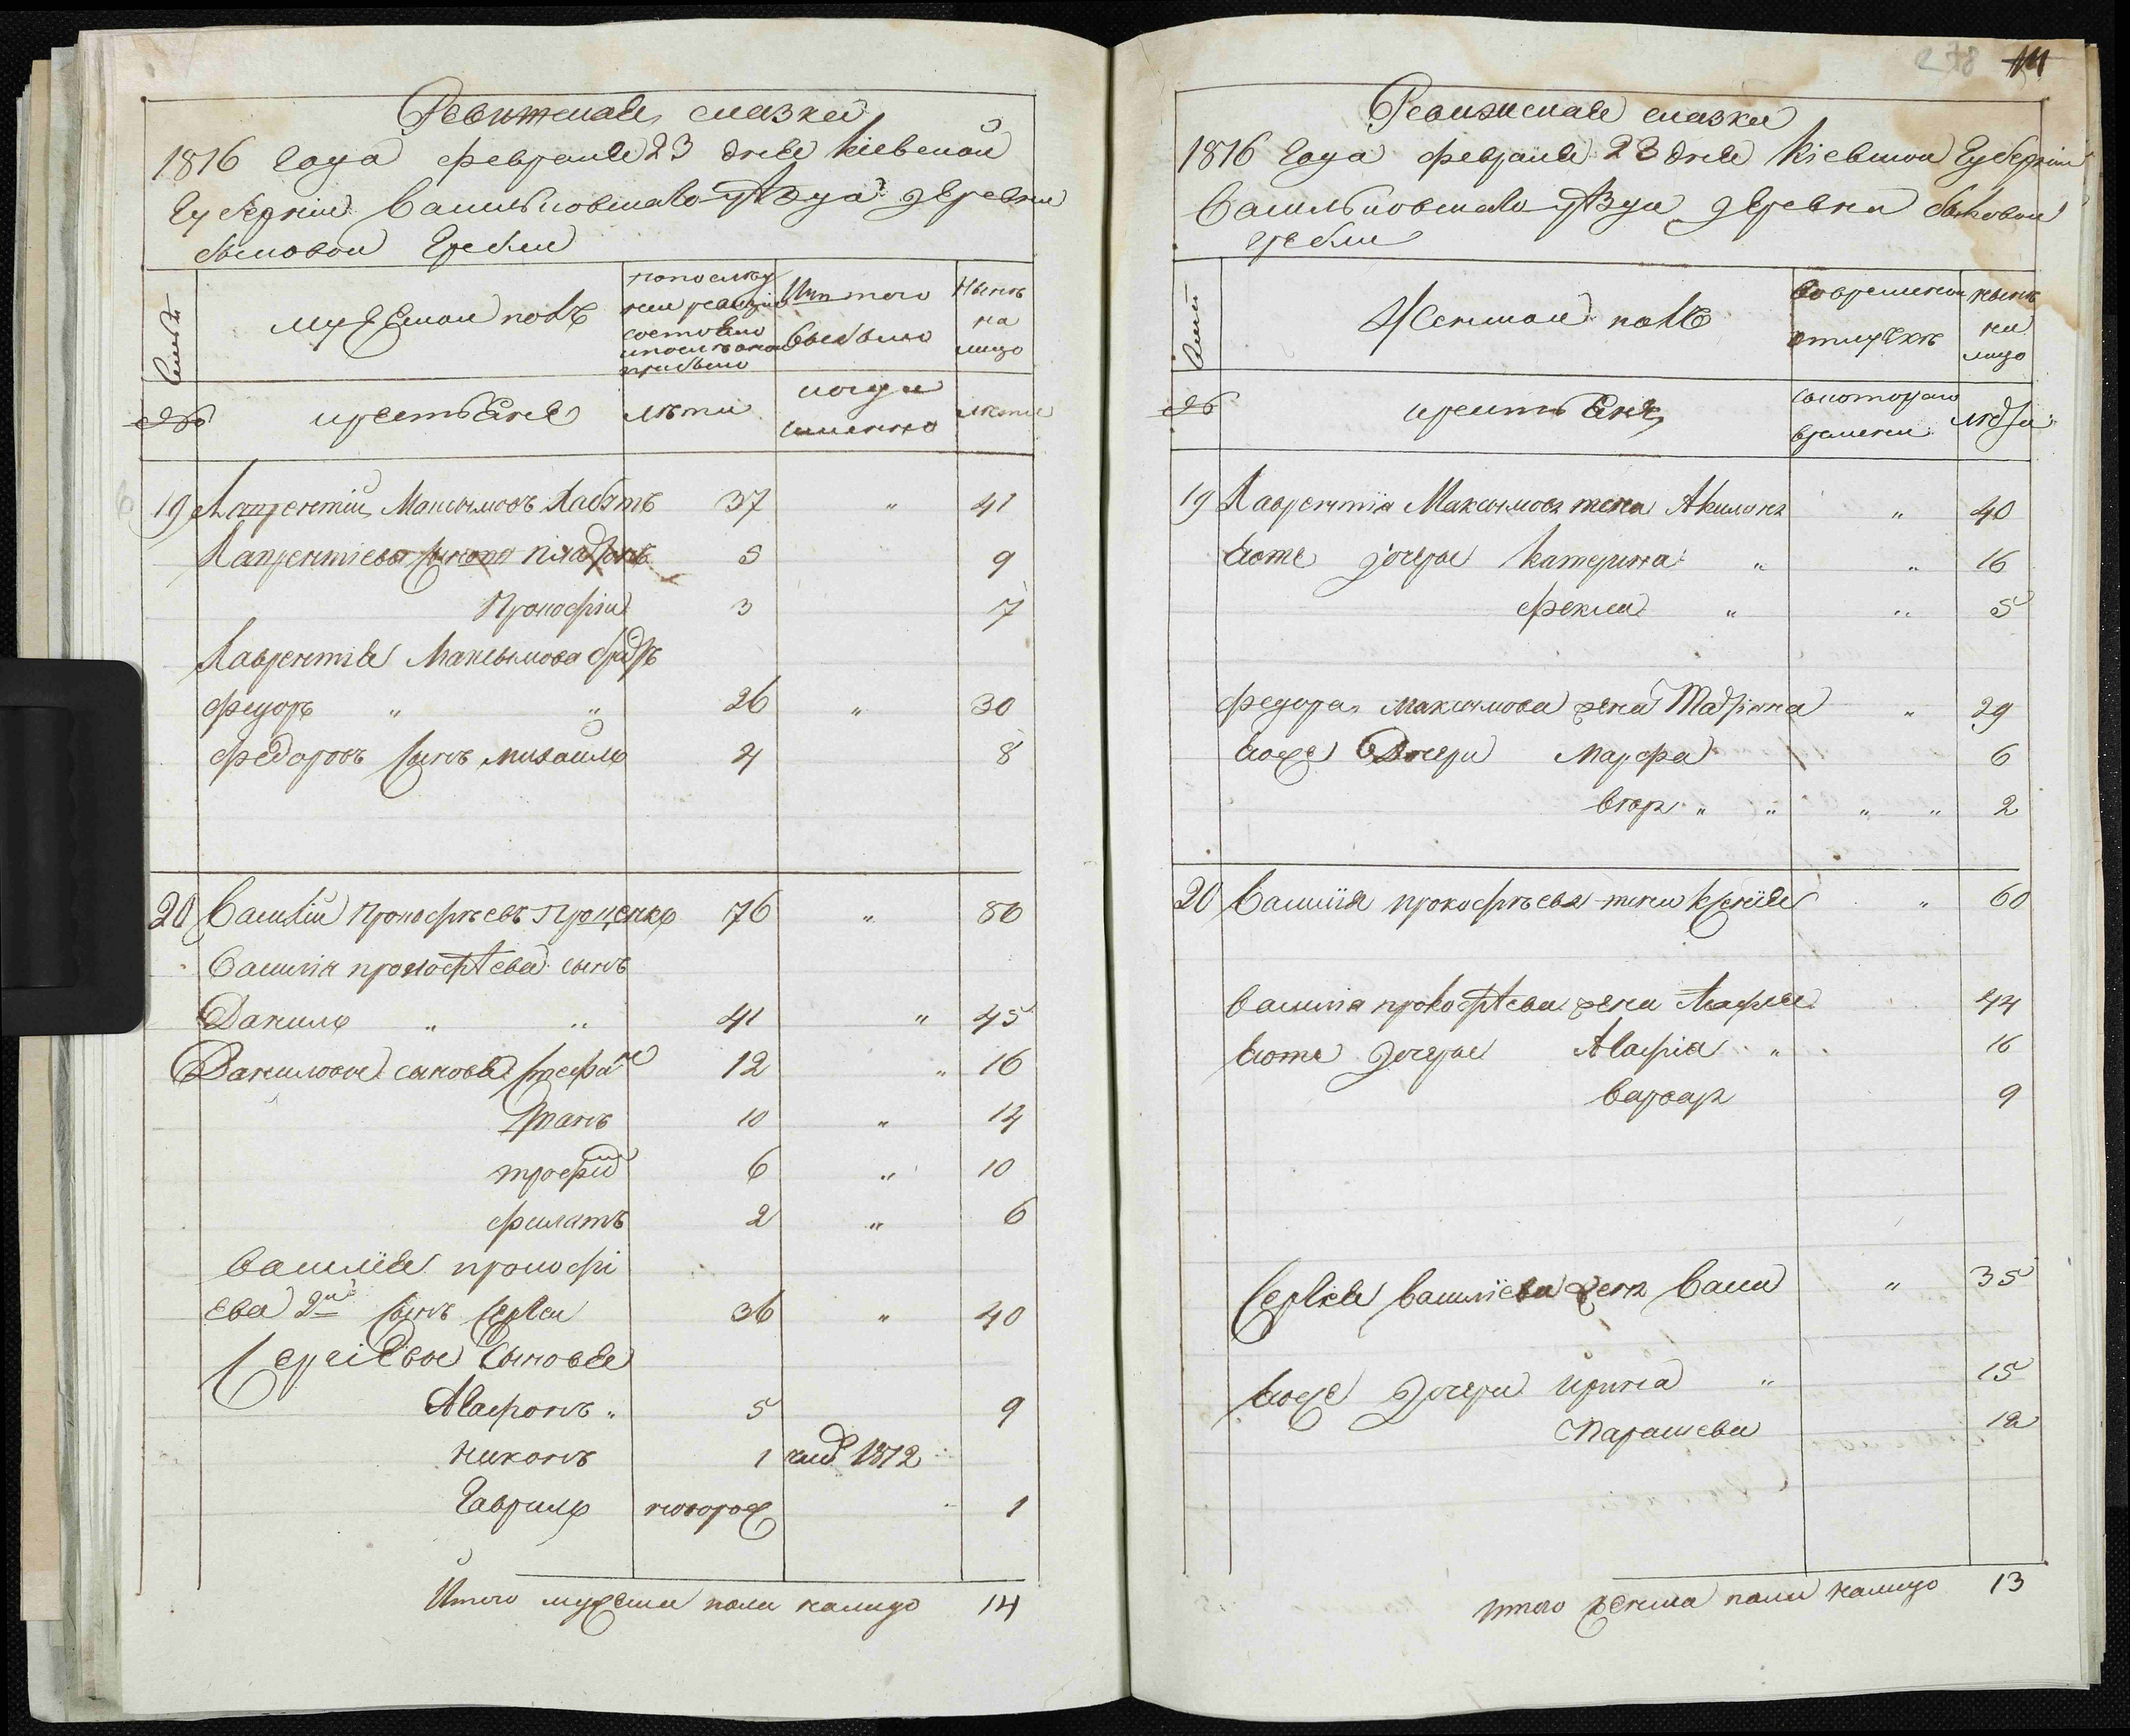 Ревижская сказка
1816 Года февраля 23 дня Кіевской
Губерніи Васильковскаго уѣзда деревни
Быковой Гребли
Семьи
мужеской полъ
по послѣд
ней ревизіи
состояло
и послѣ оной
прибыло
Изъ того
выбыло
Нынѣ
на
лицо
№
крестьяне
лѣта
когда
именно
лѣта
19 Лаврентій Максимовъ 37 " 41
Лаврентіевы сыновя 5 9
Прокофій 3 7
Лаврентія Максимова братъ
Федоръ " " 26 " 30
Федоровъ сынъ Михайло 4 8
20 Василій Прокофьевъ Проценко 76 " 80
Василія Прокофѣева сынъ
Данило " " 41 " 45
Даниловы сыновя Стефанъ 12 " 16
Иванъ 10 " 14
трофим 6 " 10
филатъ 2 " 6
Василія прокофі
ева 2й сынъ Сергѣи 36 " 40
Сергіевы Сыновя
Агафонъ " 5 9
Никонъ 1 1812
Гаврило новорож 1
Итого мужеска пола налицо 14
278 111
Ревижская сказка
1816 Года февраля 23 дня Кіевской Губерніи
Васильковскаго уѣзда деревни Быковой
гребли
Семьи
Женской полъ
Во временной
отлучкѣ
нынѣ
на
лицо
№
крестьянъ
съ котораго
времени
лѣта
19 Лаврентія Максимова жена Акилина " 40
его же дочеры Катерина " " 16
Фекла " " 5
федора Максимова жена Мотрина " 29
Его же Дочери Марфа 6
" " " " 2
20 Василія прокофьева жена Ксенія " 60
Василія прокофѣева жена Агафія 44
его же Дочеры Агафія " 16
Варвар 9
Сергія Василіева жена Васи " 35
его же Дочери Ирина " 15
Парасцева 12
итого женска пола налицо 13